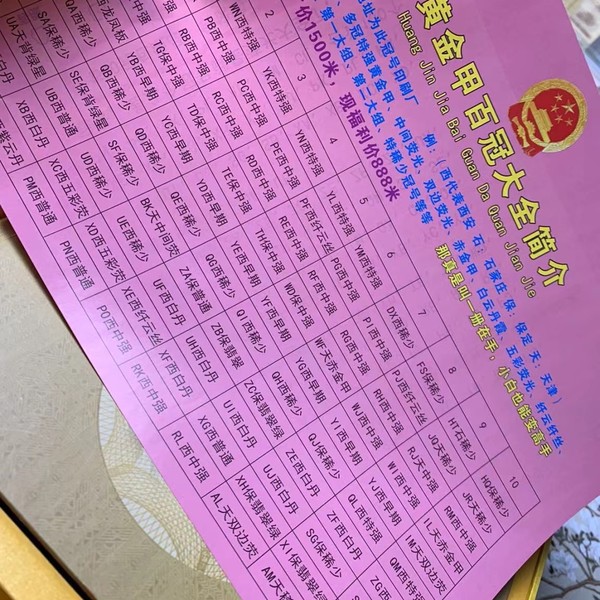 黄金甲百冠大全简介
Huang Jin Jia Bai Guan Da Quan Jian Jie
址为此冠号印刷厂 例:(西代表西安 石:石家庄 保:保定 天:天津)
、多冠特强黄金甲、中间荧光、双边荧光、赤金甲、白云丹霞、五彩荧光、纤云纤丝、
第一大组、第二大组、特稀少冠号等等
那真是叫一册在手,小白也能变高手
价1500米,现福利价888米
2 3 4 5 6 7 8 9 10
WN西特强 YK西特强 YN西特强 YL西特强 YM西特强 DX西稀少 FS保稀少 HT石稀少 HQ保稀少
PB西中强 PC西中强 PE西中强 PF西纤云丝 PG西中强 PI西中强 PJ西纤云丝 JQ天稀少 JR天稀少
RB西中强 RC西中强 RD西中强 RF西中强 RG西中强 RH西中强 RJ天中强 RM西中强
TG保中强 TD保中强 TE保中强 TH保中强 WD保中强 WF天赤金甲 WJ西中强 WI西中强 IL天赤金甲
YB西早期 YG西早期 YD西早期 YE西早期 YF西早期 YG西早期 YI西早期 YJ西早期 IM天双边荧
QA西稀少 QB西稀少 QD西稀少 QE西稀少 QG西稀少 QI西稀少 QH西稀少 QJ保稀少 QL西特强 QM西特强
SA保稀少 SE保背绿星 SF保稀少 BK天中间荧 ZA保普通 ZB保翡翠 ZC保翡翠绿 ZE西白丹 ZF西白丹 ZG西
UA天背绿星 UB西普通 UD西稀少 UE西稀少 UF西白丹 UH西白丹 UI西白丹 UJ西白丹 SG保稀少
XB西白丹 XC西五彩荧 XD西五彩荧 XE西纤云丝 XF西白丹 XG西普通 XH保翡翠绿 XI保翡翠绿
紫云丹 PM西普通 PN西普通 PO西中强 RK西中强 RL西中强 AL天双边荧 AM天稀